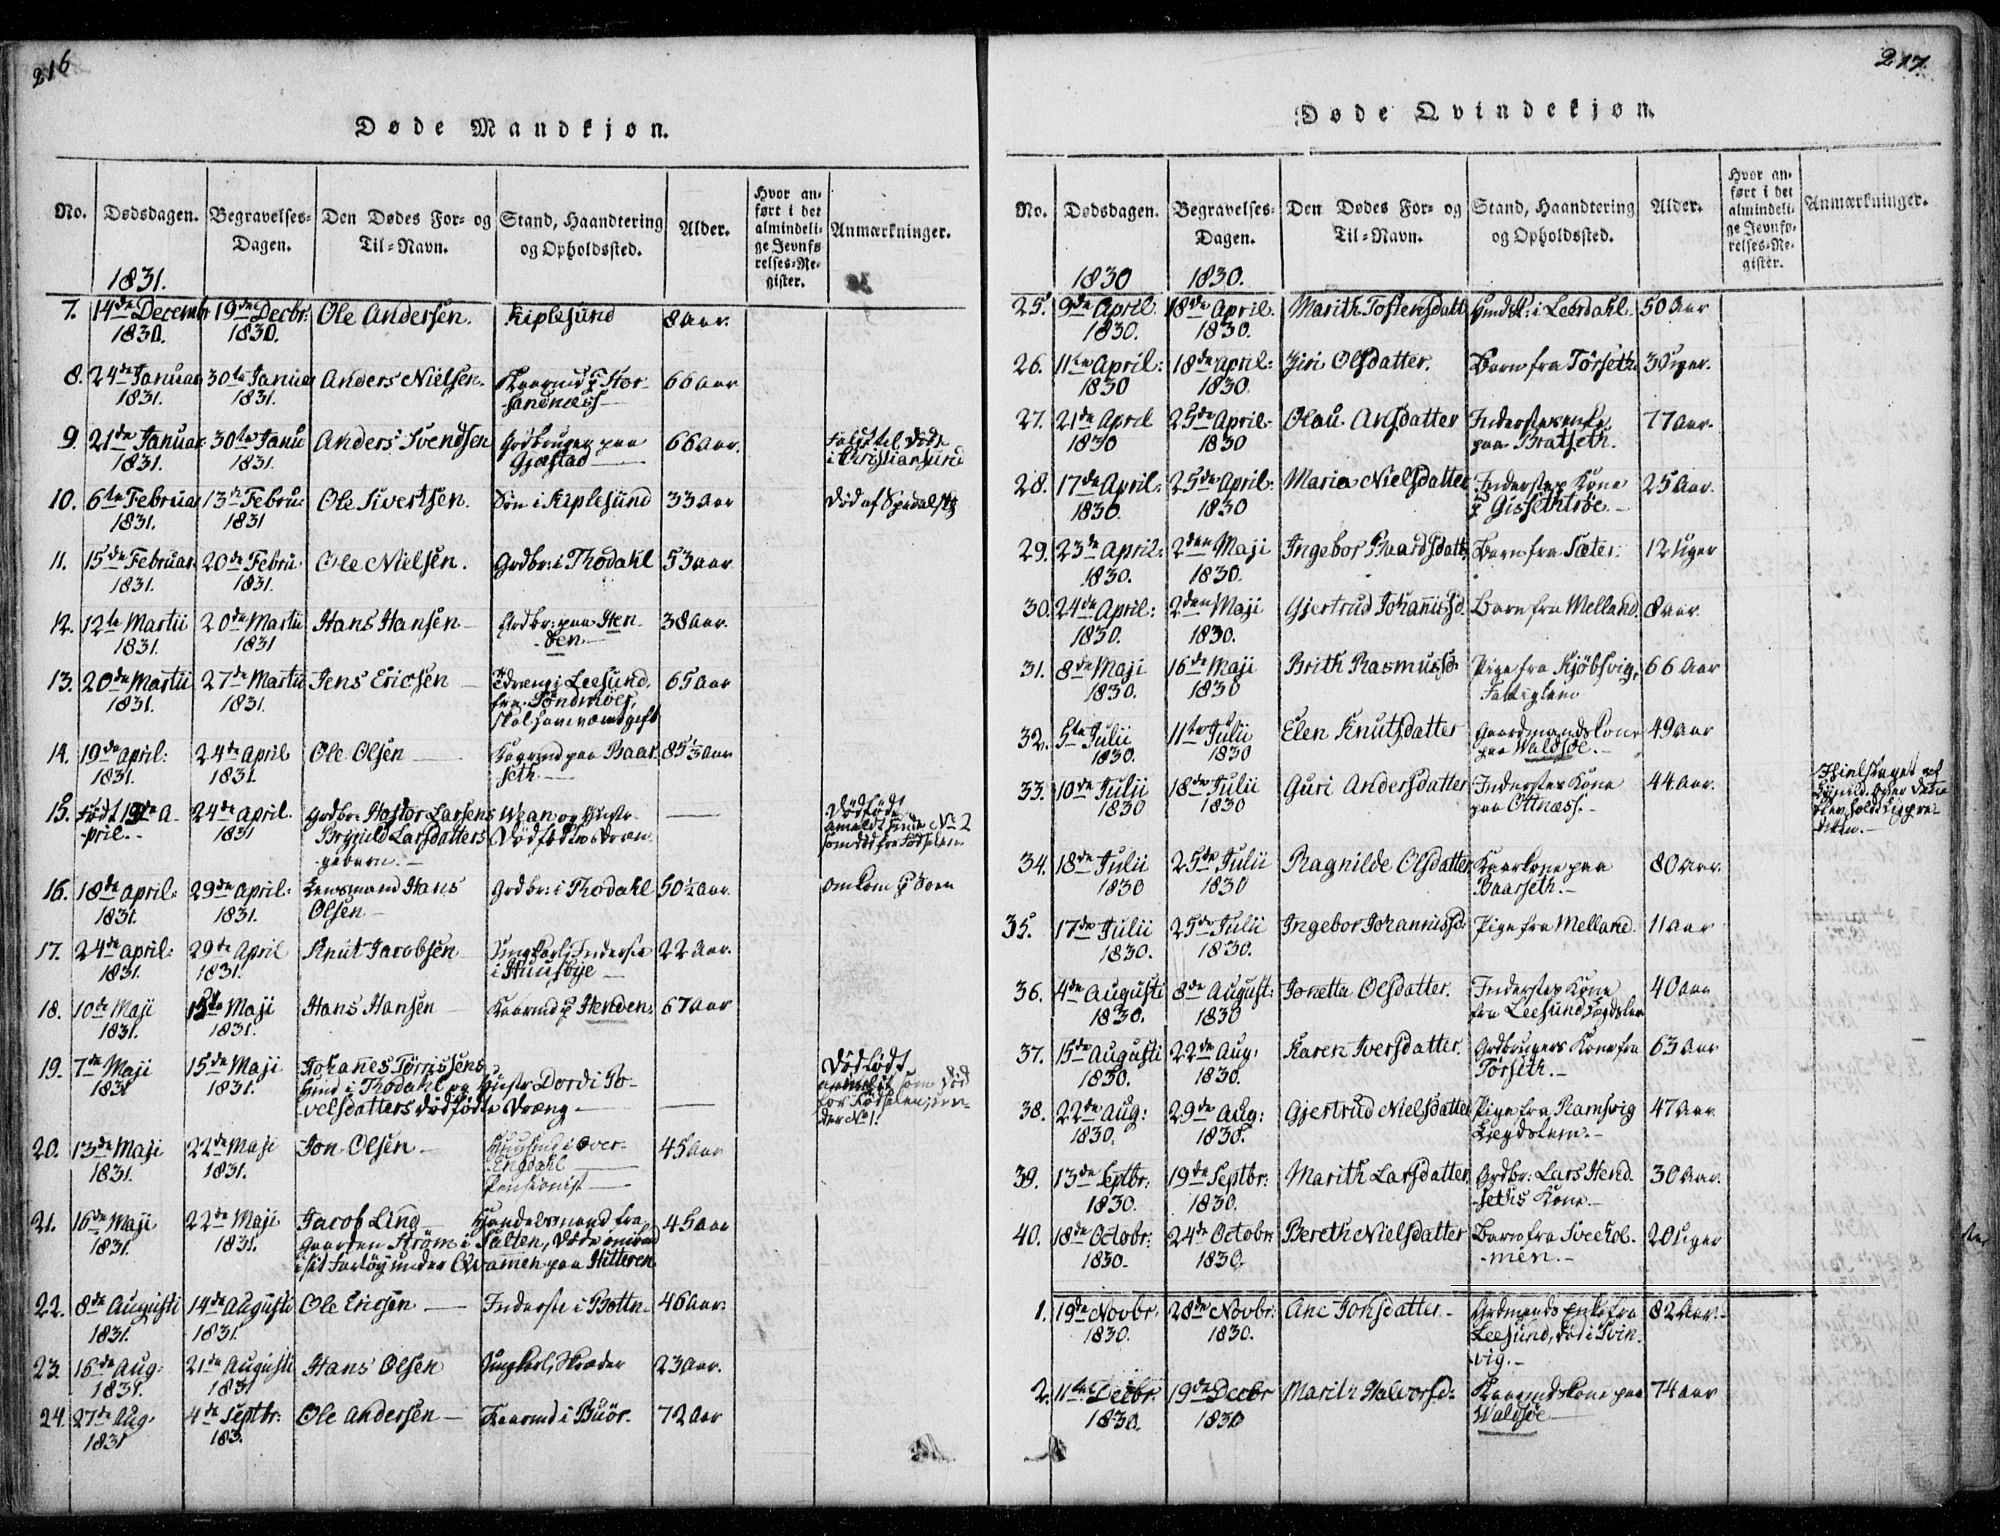 216
Døde Mandkjøn.
No.
Dødsdagen.
Begravelses-Dagen.
Den Dødes For- og Til-Navn.
Stand, Haandtering og Opholdssted.
Alder.
Hvor anført i det almindelige Jevnførelses-Register.
Anmærkninger.
1831.
7. 14de Decembr 19de Decbr: Ole Andersen. Kiplesund 8 Aar.
1830. 1830.
8. 24de Januar 30te Januar Anders Nielsen. Kaarmd p Kor-
1831. 1831. -sandnæss 66 Aar
9. 21de Januar 30te Janu Anders Svendsen Grdbruger paa 66 Aar. død
1831. 1831. Gjæstad i Christiansund
10. 6te Februar 13de Febru: Ole Sivertsen. Søn i Kiplesund 33 Aar Død af Spedalskh
1831. 1831
11. 15de Februar 20de Febru: Ole Nielsen. Grdbr: i Thodahl 53 Aar
1831. 1831.
12. 12te Martii 20de Martii Hans Hansen Grdbr: paa Hen- 38 Aar.
1831. 1831 -den
13. 20de Martii 27de Martii Jens Ericsen Dræng i Leesund, 65 Aar
1831. 1831. fra Söndmöer,
skal have været gift
14. 19de April: 24de April Ole Olsen Kaarmd paa Baar- 85 1/2 Aar
1831. 1831. seth.
15. Født 19de A- 24de April. Grdbr: Hostor Larsens Waan og Hustr.
pril. 1831 Brynild Larsdatters Dödfödte Dræn-
gebarn. Dödfödt
anmeldt No 2
som död för Födselen
16. 18de April: 29de April: Lensmand Hans Grdbr: i Thodahl 50 1/2 Aar. Omkom p Söen
1831. 1831. Olsen
17. 24de April: 29de April Knut Jacobsen Ungkarl, Inderste 22 Aar.
1831. 1831. i Huusbye
18. 10de Maji 15de Maji Hans Hansen Kaarmd p Henden. 67 Aar
1831. 1831.
19. 7de Maji 15de Maji Johanes Törrissens
1831 1831. Huusmd i Thodahl og Hustr Dordi To-
velsdatters dödfödte Dræng
Dödfödt
anmeldt som död
for Födselen, un-
der No 1.
20. 13de Maji 22de Maji Jon Olsen Huusmd i Over- 45 Aar
1831. 1831. Engdahl
Pensionist
21. 16de Maji 22de Maji Jacob Lind Handelsmand fra 45 Aar
1831. 1831. Gaarden Ström i Salten, døde ombord
i sit Fartöy under Qvammen paa Hitteren
22. 8de Augusti 14de Augusti Ole Ericsen Inderste i Bottn 46 Aar.
1831. 1831.
23. 16de Aug: 21de Augusti Hans Olsen Ungkarl, Skræder 23 Aar.
1831. 1831
24. 27de Aug: 4de Septbr: Ole Andersen Kaarmd i Buör. 72 Aar
1831 183.
217.
Døde Qvindekjøn.
No.
Dødsdagen.
Begravelses-Dagen.
Den Dødes For- og Til-Navn.
Stand, Haandtering og Opholdssted.
Alder.
Hvor anført i det almindelige Jevnførelses-Register.
Anmærkninger.
1830 1830.
25. 9de April. 18de April. Marith Tostensdatt Huusmdsk: i Leerdahl. 50 Aar
1830. 1830.
26. 11te April: 18de April: Jiri Olsdatter. Barn fra Törseth 3 Uger.
1830 1830.
27. 21de April 25de April: Olau Arnsdatter Inderstes enke 77 Aar.
1830 1830 paa Bratseth.
28. 17de April: 25de April: Maria Nielsdatter Inderstes Kone 25 Aar.
1830. 1830 p Gissethtröe.
29. 23de April: 2den Maji Ingebor Baardsdatt Barn fra Sæter. 12 Uger
1830. 1830.
30. 24de April: 2den Maji Gjertrud Johannisd. Barn fra Melland. 8 Aar.
1830. 1830.
31. 8de Maji 16de Maji Brith Rasmusd. Pige fra Kjöbsvig, 66 Aar
1830. 1830 Fattiglem
32. 5te Julii 11te Julii Elen Knutsdatter Gaardmandskone 49 Aar
1830. 1830 paa Waldsöe.
33. 10de Julii 18de Julii Guri Andersdatter Inderstes Kone 44 Aar.
1830 1830 paa Ottnæss.
34. 18de Julii 25de Julii Ragnilde Olsdatter Kaarkone paa 80 Aar.
1830 1830 Baarseth.
35. 17de Julii 25de Julii Ingebor Johannisd: Pige fra Melland. 11 Aar
1830. 1830.
36. 4de Augusti 8de August: Jonetta Olsdatter. Inderstes Kone 40 Aar
1830. 1830 fra Leesund Lægdslem
37. 15de Augusti 22de Aug: Karen Iversdatter. Grdbrugers Kone fra 63 Aar
1830. 1830. Törseth.
38. 22de Aug: 29de Aug: Gjertrud Nielsdatter Pige fra Ramsvig 47 Aar
1830. 1830. Lægdslem.
39. 13de Septbr: 19de Septbr: Marith Larsdatter Grdbr: Lars Hend- 30 Aar.
1830. 1830. -seths Kone
40. 18de Octobr: 24de Octobr: Bereth Nielsdatter Barn fra Sveehol- 20 Uger
1830. 1830. -men.
1. 19de Novbr: 28de Novbr: Ane Johsdatter. Grdmands Enke fra 82 Aar.
1830. 1830. Leesund, död i Svin-
vig.
2. 11te Decbr: 19de Decbr Marith Halvorsd: Kaarmdskone paa 74 Aar
1830. 1830 Waldsöe